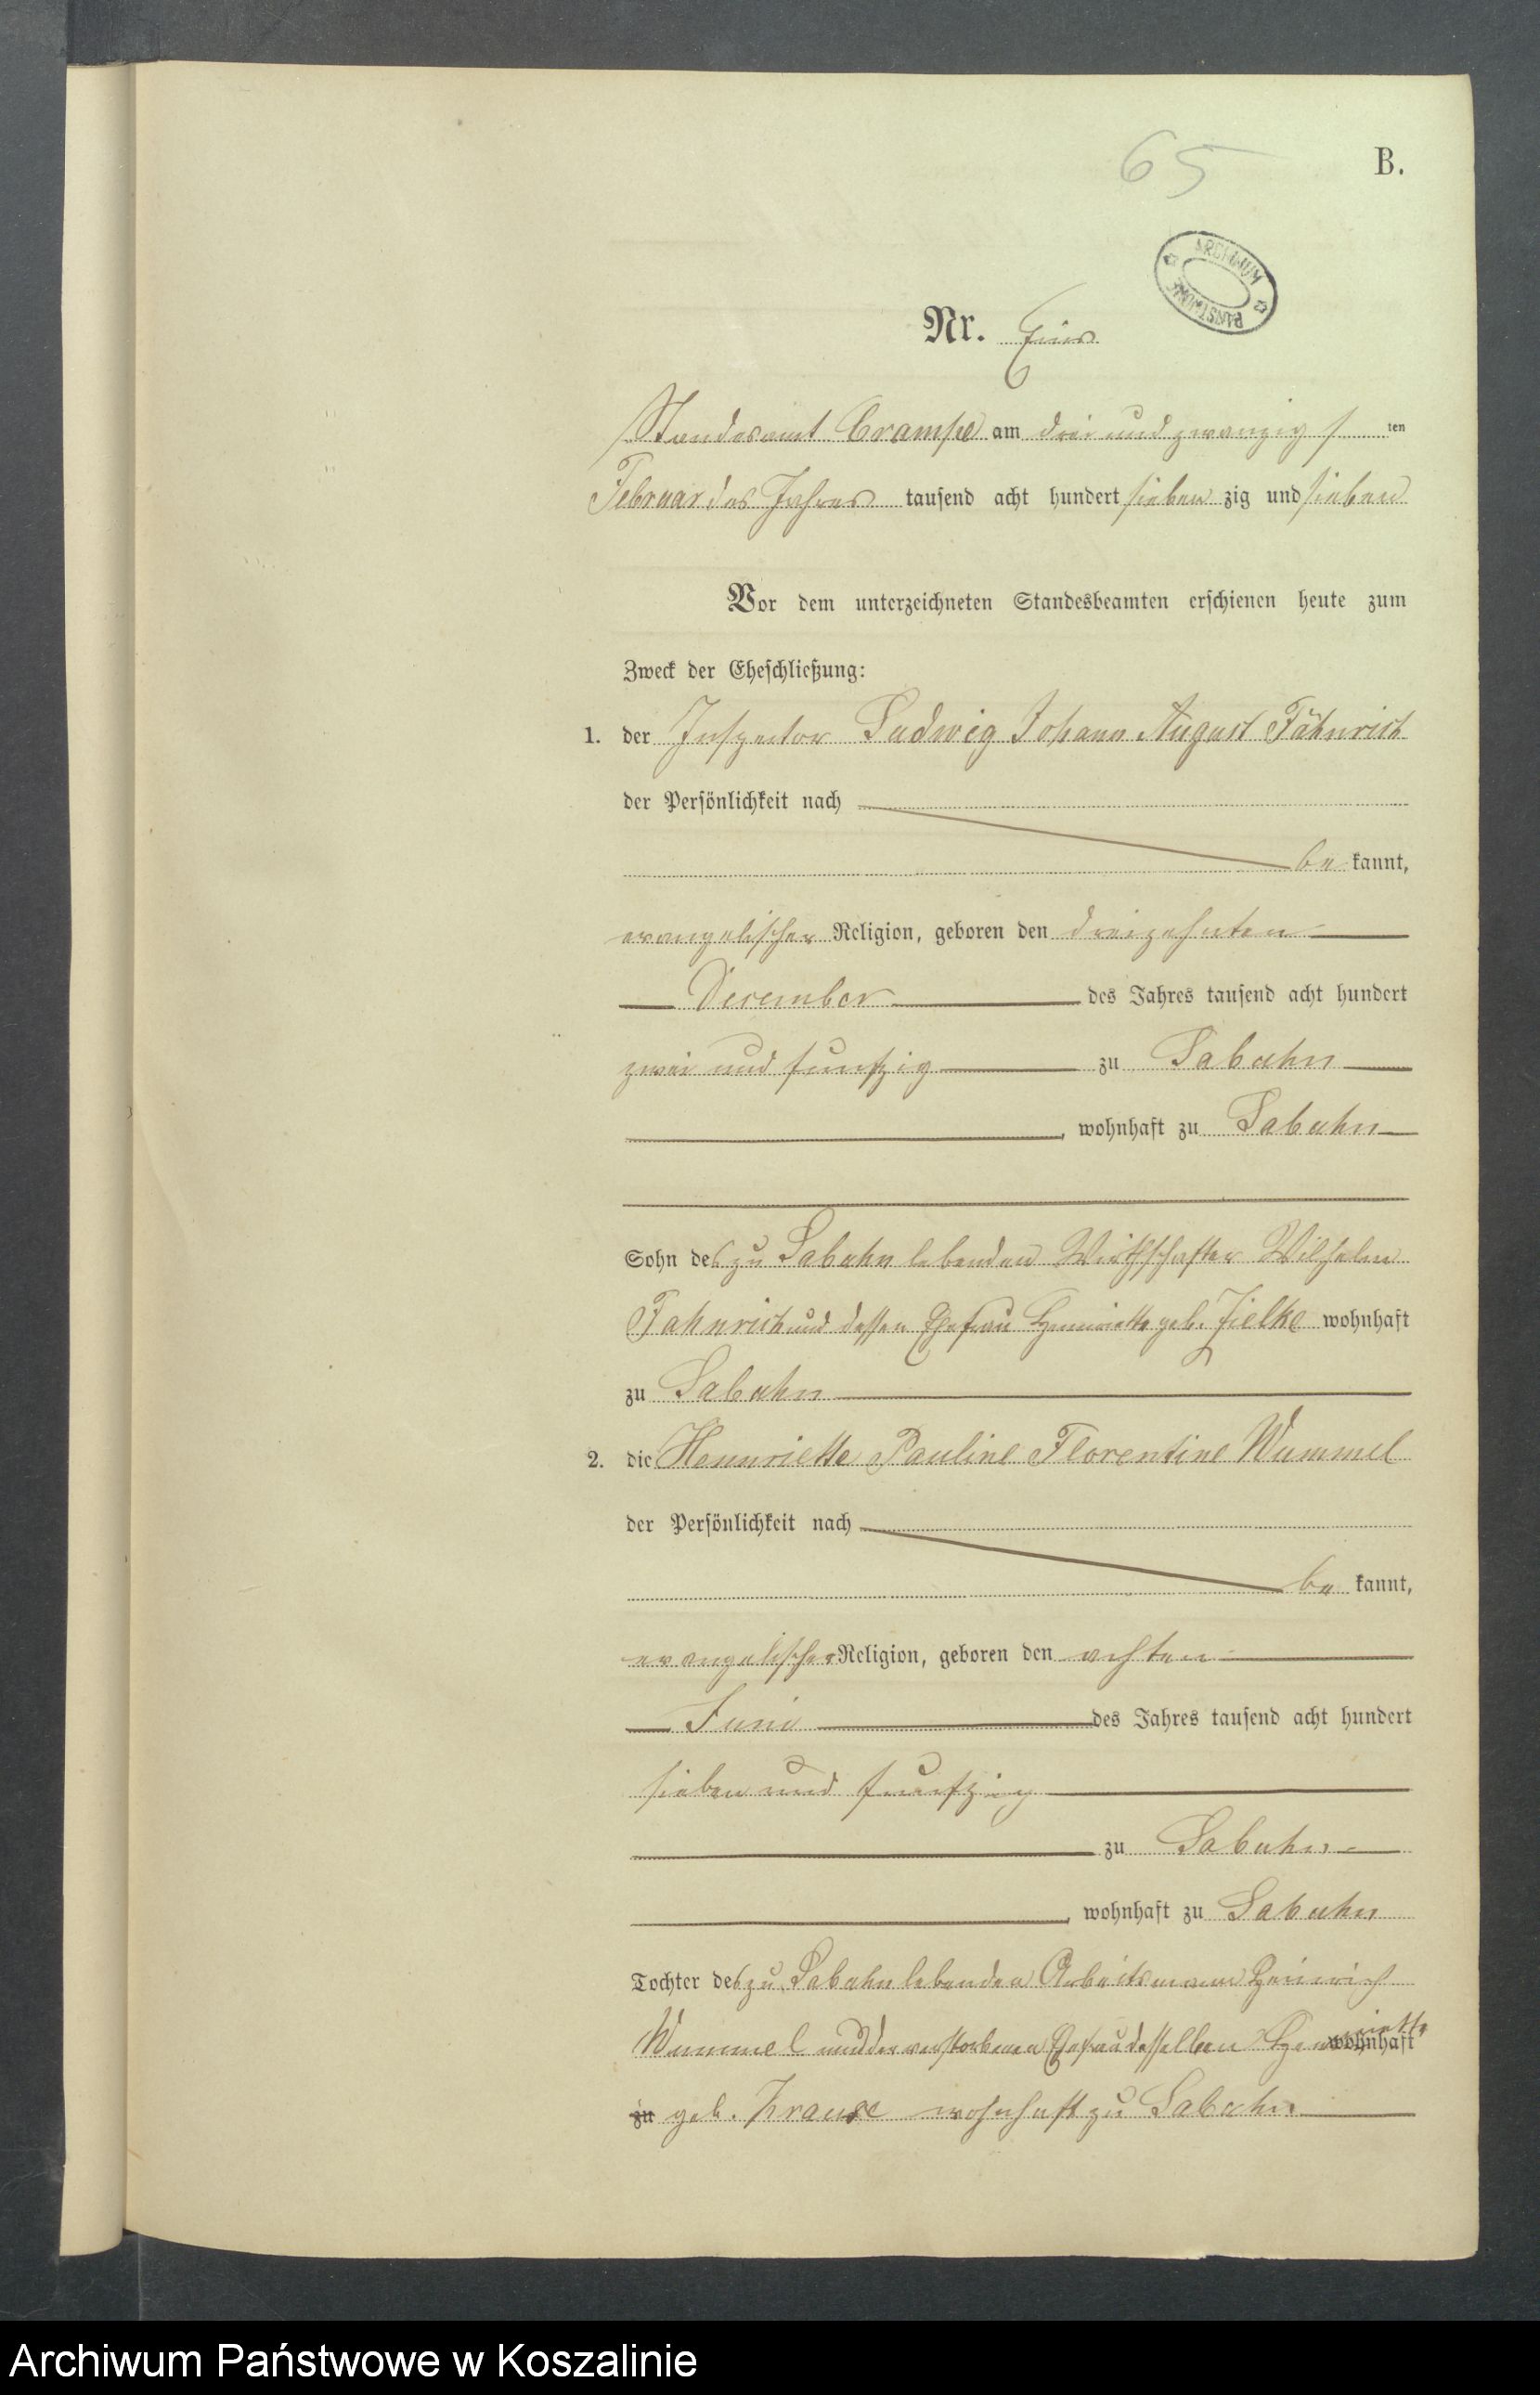 65
B.
ARCHIWUM PAŃSTWOWE
Nr. Eins
Standesamt Crampe am drei und zwanzigsten
Februar des Jahres tausend acht hundert siebenzig und sieben
Vor dem unterzeichneten Standesbeamten erschienen heute zum
Zweck der Eheschließung:
1. der Inspector Ludwig Johann August Fähnrich
der Persönlichkeit nach
be kannt,
evangelischer Religion, geboren den dreizehnten
December des Jahres tausend acht hundert
zwei und funfzig zu Labuhn
, wohnhaft zu Labuhn
Sohn des zu Labuhn lebenden Wirthschafter Wilhelm
Fähnrich und dessen Ehefrau Henriette geb. Zielke wohnhaft
zu Labuhn
2. die Hennriette Pauline Florentine Wummel
der Persönlichkeit nach
be kannt,
evangelischer Religion, geboren den achten
Juni des Jahres tausend acht hundert
sieben und funfzig
zu Labuhn
, wohnhaft zu Labuhn
Tochter des zu Labuhn lebenden Arbeitsmann Heinrich
Wummel und der verstorbenen Ehefrau desselben Henriette wohnhaft
zu geb. Krause wohnhaft zu Labuhn
Archiwum Państwowe w Koszalinie